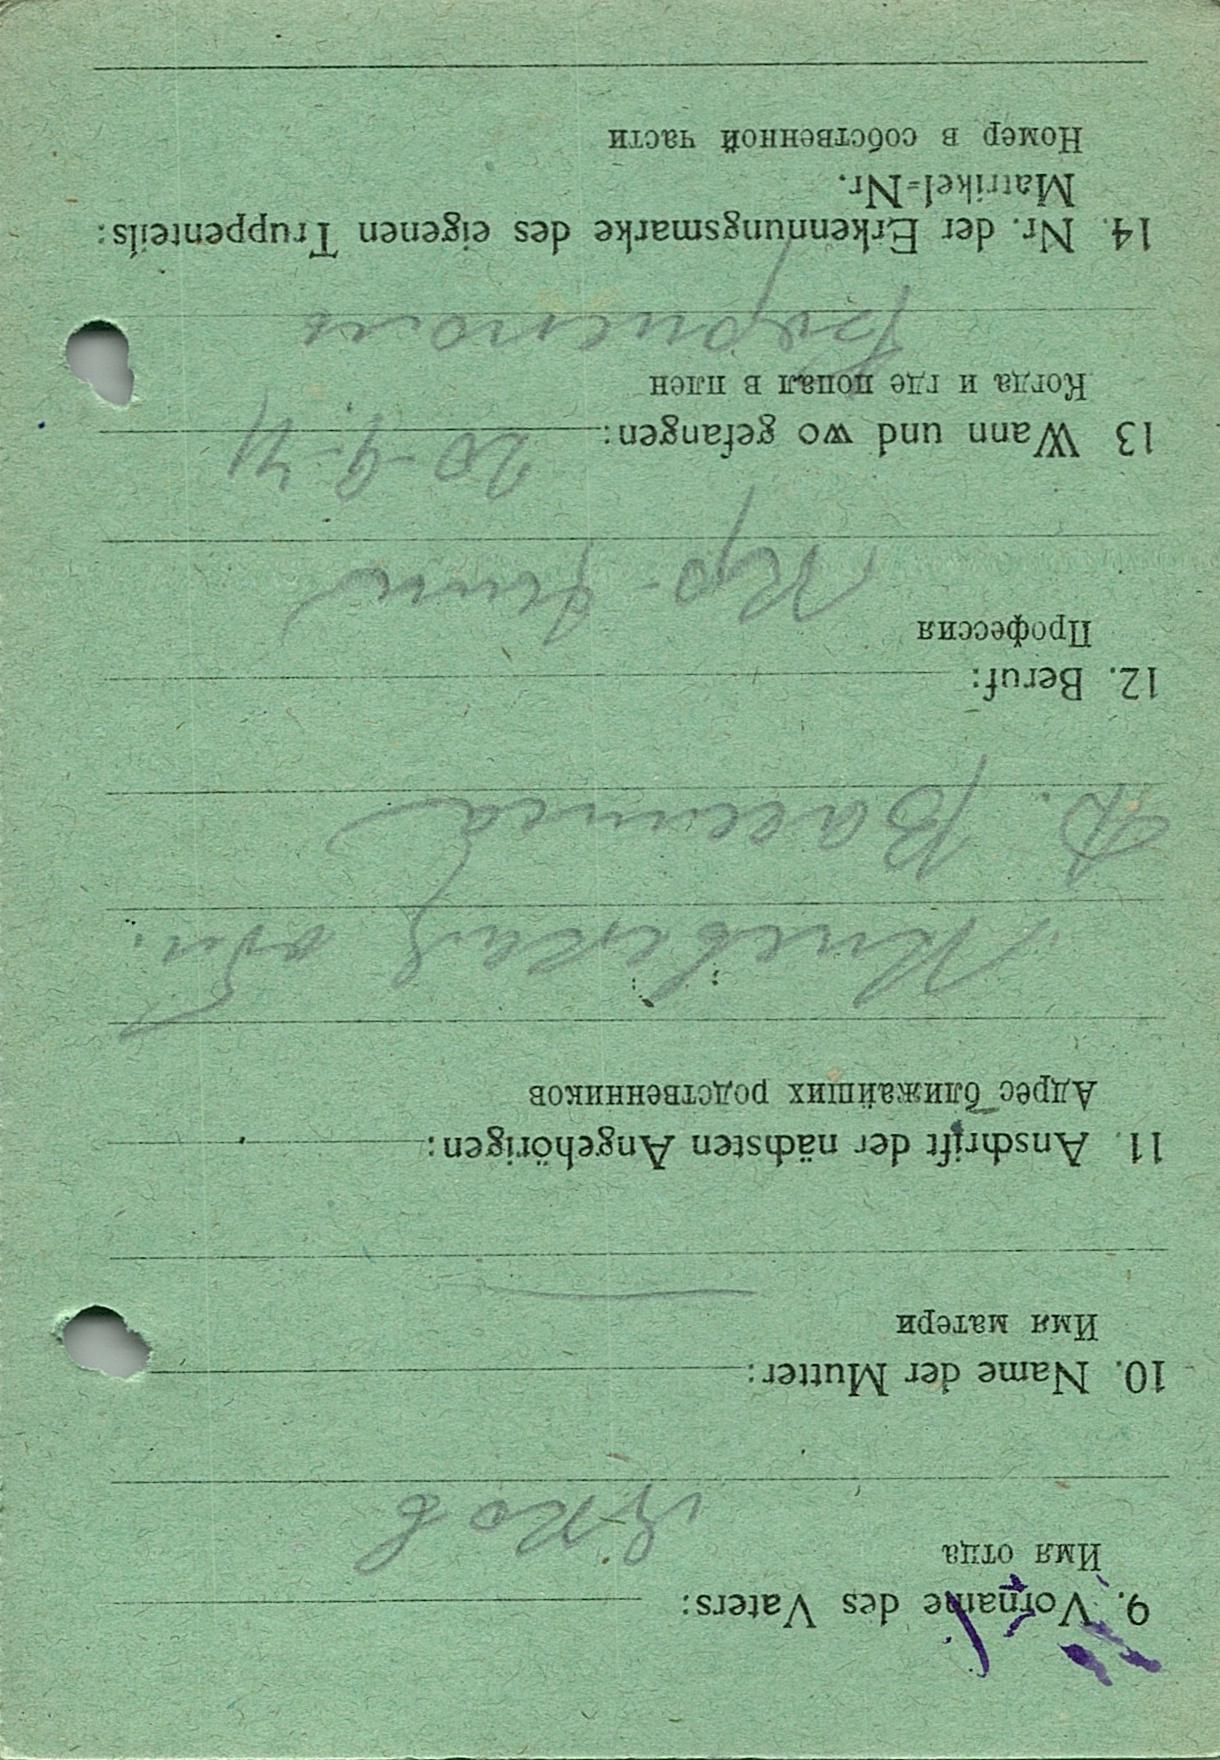 9. Vorname des Vaters:
Имя отца
Яков
10. Name der Mutter:
Имя матери
11. Anschrift der nächsten Angehörigen:
Адрес ближайших родственников
Киевская обл.
д.
12. Beruf:
Профессия
13 Wann und wo gefangen:
20-9-41
Когда и где попал в плен
Борисполь
14. Nr. der Erkennungsmarke des eigenen Truppenteils:
Matrikel-Nr.
Номер в собственной части